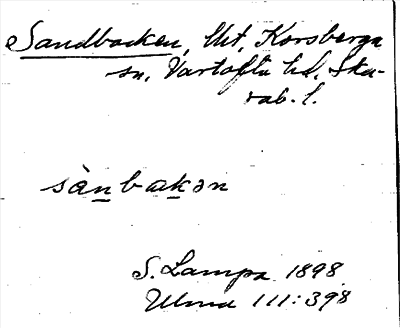 Sandbacken, Uht, Korsberga
sn, Vartofta hd, Ska-
rab. l.
sànbakən
S. Lampa 1898
Ulma 111:398